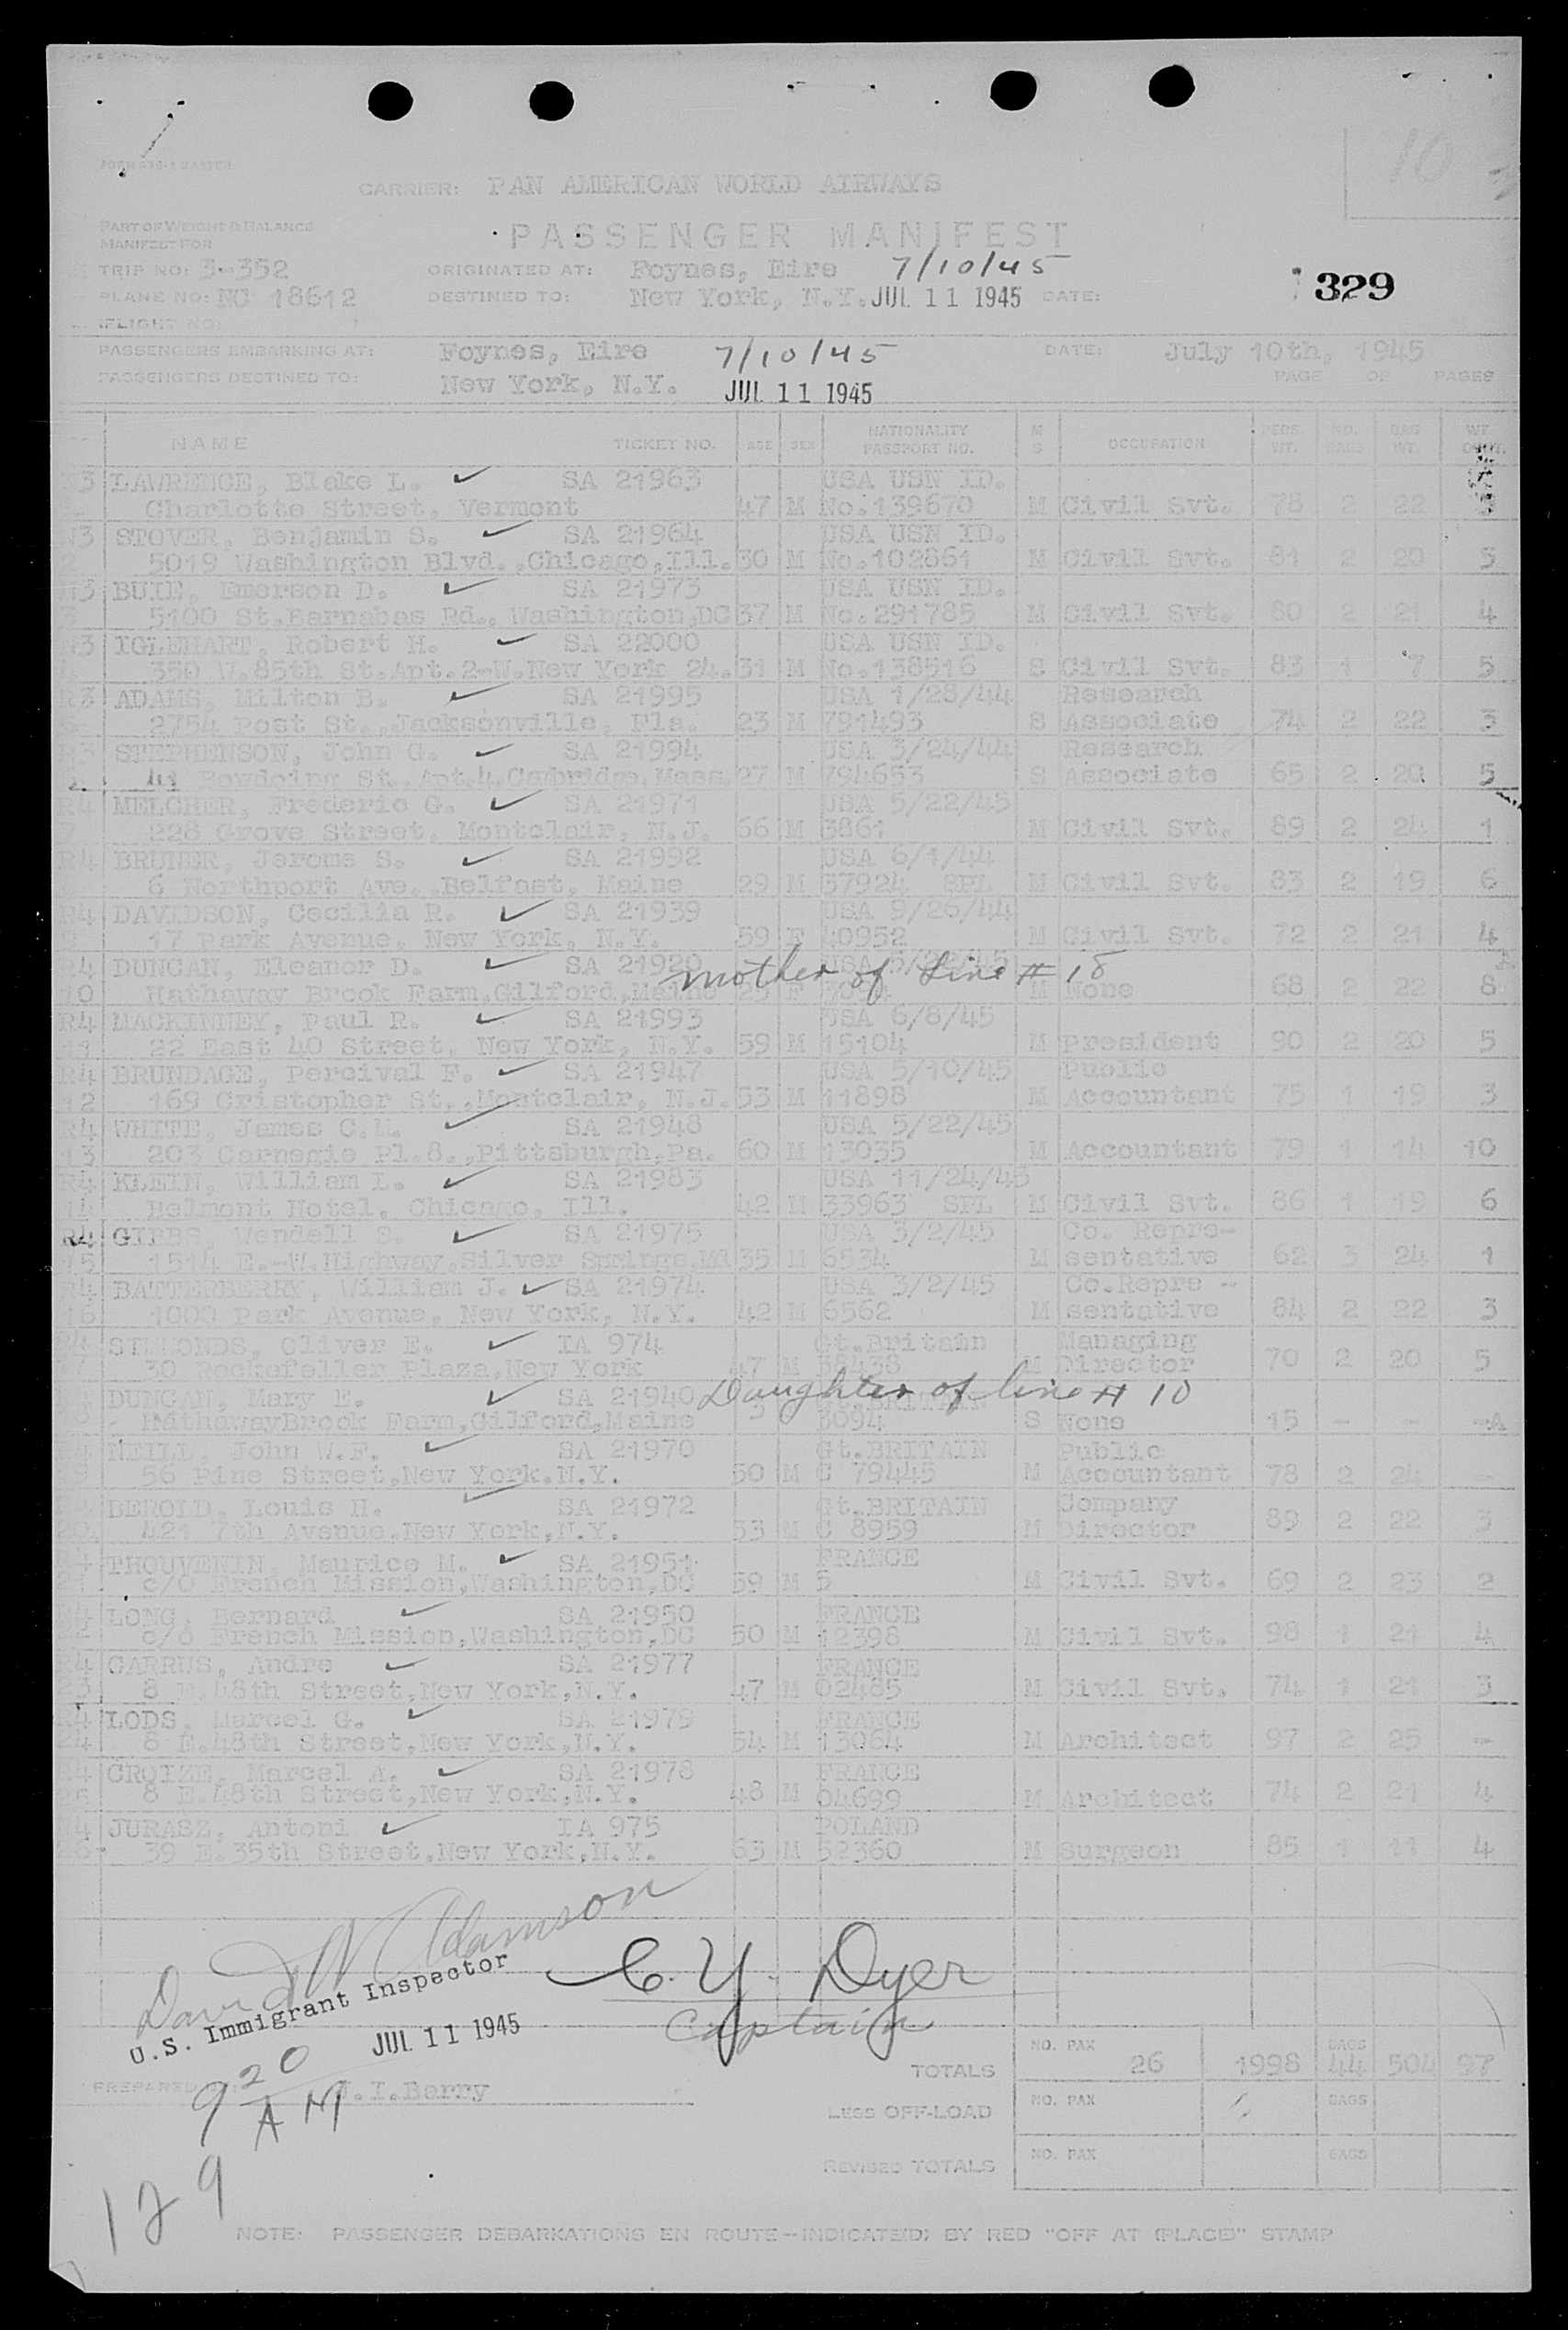 10
CARRIER: PAN AMERICAN WORLD AIRWAYS
PART OF WEIGHT & BALANCE
MANIFEST FOR
PASSENGER MANIFEST
TRIP NO: 3-352 ORIGINATED AT: Foynes, Eire 7/10/45
PLANE NO: NC 18612 DESTINED TO: New York, N.Y. JUL 11 1945 DATE: 329
FLIGHT NO:
PASSENGERS EMBARKING AT: Foynes, Eire 7/10/45 DATE: July 10th, 1945
PASSENGERS DESTINED TO: New York, N.Y. JUL 11 1945 PAGE OF PAGES
NAME TICKET NO. AGE SEX NATIONALITY PASSPORT NO. M S OCCUPATION PERS. WT. NO. BAGS BAG WT. WT.
LAWRENCE, Blake L. SA 21963 USA USN ID.
Charlotte Street, Vermont 47 M No.139670 M Civil Svt. 78 2 22
STOVER, Benjamin S. SA 21964 USA USN ID.
5019 Washington Blvd.,Chicago,Ill. 30 M No.102861 M Civil Svt. 81 2 20 5
BUIE, Emerson D. SA 21973 USA USN ID.
5100 St.Barnabas Rd., Washington,DC 37 M No.291785 M Civil Svt. 80 2 21 4
IGLEHART, Robert H. SA 22000 USA USN ID.
350 W.85th St.Apt.2-W.New York 24. 31 M No.138516 S Civil Svt. 83 1 7 5
R3 ADAMS, Milton B. SA 21995 USA 1/28/44 Research
2754 Post St.,Jacksonville, Fla. 23 M 791493 S Associate 74 2 22 3
STEPHENSON, John G. SA 21994 USA 3/24/44 Research
41 St. Apt.4, Cambridge, Mass. 27 M 794653 S Associate 65 2 20 5
R4 MELCHER, Frederic G. SA 21971 USA 5/22/45
228 Grove Street, Montclair, N.J. 66 M 3861 M Civil Svt. 89 2 24 1
R4 BRUNER, Jerome S. SA 21992 USA 6/1/44
6 Northport Ave.,Belfast, Maine 29 M 37924 SPL M Civil Svt. 83 2 19 6
R4 DAVIDSON, Cecilia R. SA 21939 USA 9/26/44
17 Park Avenue, New York, N.Y. 59 F 40952 M Civil Svt. 72 2 21 4
R4 DUNCAN, Eleanor D. SA 21920 mother of Line # 18
10 Hathaway Brook Farm,Gilford,Maine M None 68 2 22 8
R4 MACKINNEY, Paul R. SA 21993 USA 6/8/45
11 22 East 40 Street, New York, N.Y. 59 M 15104 M President 90 2 20 5
R4 BRUNDAGE, Percival F. SA 21947 USA 5/10/45 Public
12 169 Cristopher St.,Montclair, N.J. 53 M 11898 M Accountant 75 1 19 3
R4 WHITE, James C.M. SA 21948 USA 5/22/45
13 203 Carnegie Pl.8.,Pittsburgh,Pa. 60 M 13035 M Accountant 79 1 14 10
R4 KLEIN, William L. SA 21983 USA 11/24/43
14 Belmont Hotel, Chicago, Ill. 42 M 33963 SPL M Civil Svt. 86 1 19 6
R4 GIBBS, Wendell S. SA 21975 USA 3/2/45 Co. Repre-
15 1514 E.-W.Highway,Silver Springs,Md 35 M 6534 M sentative 62 3 24 1
R4 BATTERBERRY, William J. SA 21974 USA 3/2/45 Co.Repre -
16 1000 Park Avenue, New York, N.Y. 42 M 6562 M sentative 84 2 22 3
SIMMONDS, Oliver E. IA 974 Gt.Britain Managing
30 Rockefeller Plaza,New York 47 M 38438 M Director 70 2 20 5
DUNCAN, Mary E. SA 21940 Daughter of line # 10
HathawayBrook Farm,Gilford,Maine 3 3094 S None 15 - -
NEILL, John W.F. SA 21970 Gt.BRITAIN Public
56 Pine Street,New York,N.Y. 50 M C 79445 M Accountant 78 2 24 -
BEROLD, Louis H. SA 21972 Gt.BRITAIN Company
421 7th Avenue,New York,N.Y. 53 M C 8959 M Director 89 2 22 3
THOUVENIN, Maurice M. SA 21951 FRANCE
c/o French Mission,Washington,DC 39 M 5 M Civil Svt. 69 2 23 2
LONG, Bernard SA 21950 FRANCE
c/o French Mission,Washington,DC 50 M 12398 M Civil Svt. 98 1 21 4
GARRUS, Andre SA 21977 FRANCE
8 E.48th Street,New York,N.Y. 47 M 02485 M Civil Svt. 74 1 21 3
LODS, Marcel G. SA 21979 FRANCE
24 8 E.48th Street,New York,N.Y. 54 M 13064 M Architect 97 2 25 -
CROIZE, Marcel A. SA 21978 FRANCE
8 E.48th Street,New York,N.Y. 48 M 04699 M Architect 74 2 21 4
JURASZ, Antoni IA 975 POLAND
39 E.35th Street,New York,N.Y. 63 M 52360 M Surgeon 85 1 11 4
David W Adamson
U.S. Immigrant Inspector
C. Y. Dyer
Captain
JUL 11 1945
TOTALS NO. PAX 26 1998 BAGS 44 504 97
9 20 AM
PREPARED J.I.Berry
LESS OFF-LOAD NO. PAX BAGS
REVISED TOTALS NO. PAX BAGS
129
NOTE: PASSENGER DEBARKATIONS EN ROUTE - INDICATE(D) BY RED "OFF AT (PLACE)" STAMP